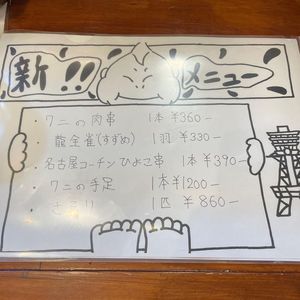 新!! メニュー
・ワニの肉串 1本 ¥360-
・龍金雀(すずめ) 1羽 ¥330-
・名古屋コーチンひよこ串 1本 ¥390-
・ワニの手足 1本 ¥1200-
・さそり 1匹 ¥860-